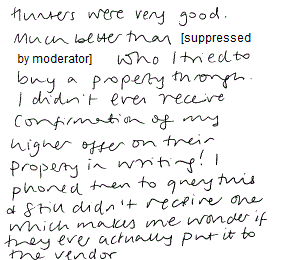 Hunters were very good.
Much better than [suppressed
by moderator] who I tried to
buy a property through.
I didn't ever receive
Confirmation of my
higher offer on their
property in writing! I
phoned them to query this
& still didn't receive one
which makes me wonder if
they ever actually put it to
the vendor